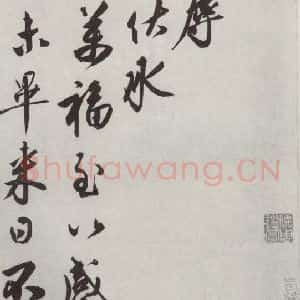 辱
伏承
萬福至以感
未畢来日不
Shufawang.CN